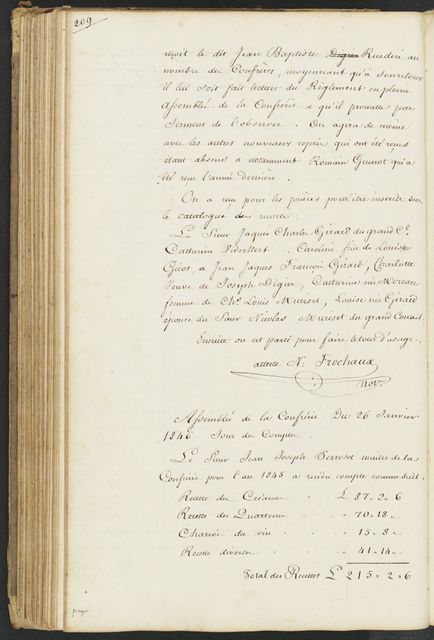 209
reçoit le dit Jean Baptiste Digier Ruedin au
nombre des Confrères, moyennant qu'à son retour
il lui soit fait lecture du Règlement en pleine
Assemblée de la Confrérie & qu'il promette par
Serment de l'observer. On agira de même
avec les autres nouveaux repris qui ont été reçus
étant absens & notamment Romain Guenot qui a
été reçu l'année dernière.
On a reçu pour les prières pour être inscrits sur
le catalogue des morts:
Le Sieur Jaques Charles Girard du grand Cl.
Catherine . Caroline fille de Louis
, & Jean Jaques François Girard, Charlotte
Veuve de Joseph Digier, Catherine née Moreau
femme de Chs Louis Muriset, Louise née Girard
épouse du Sieur Nicolas Muriset du grand Conseil.
Ensuite on est parti pour faire le tour d'usage.
atteste N. Frochaux
not.
Assemblée de la Confrérie Du 26 Janvier
1846 Jour des Comptes.
Le Sieur Jean Joseph Perroset maître de la
Confrérie pour l'an 1845 a rendu compte comme suit.
Recette des Créances . . £ 87 - 2 - 6
Recette des Quarterons . . 70 - 18 -
Charroi du vin . . 15 - 8 -
Recette diverse . . 41 - 14 -
Total des Recettes £ 215 - 2 - 6
payé